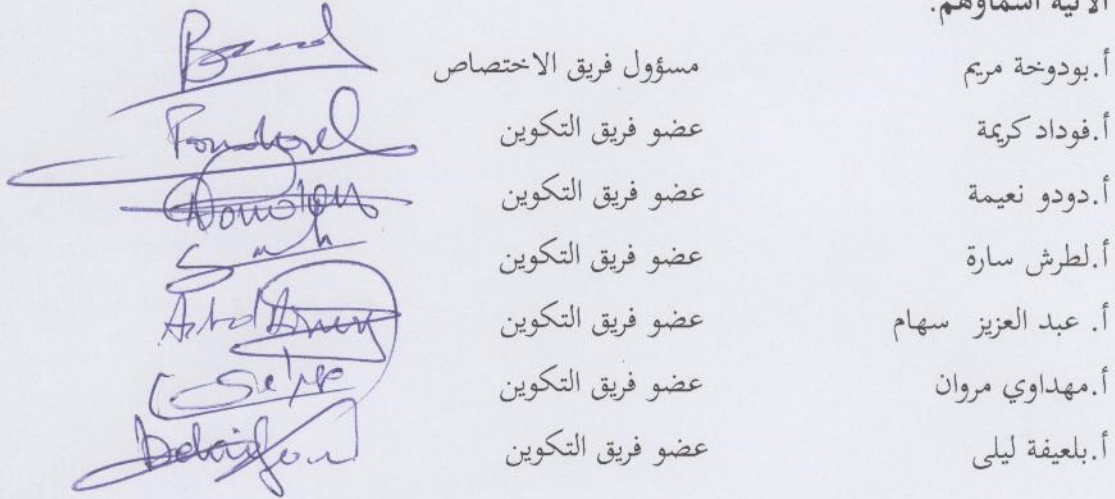 الآتية أسماؤهم:
أ.بودوخة مريم مسؤول فريق الاختصاص
أ.فوداد كريمة عضو فريق التكوين
أ.دودو نعيمة عضو فريق التكوين
أ.لطرش سارة عضو فريق التكوين
أ. عبد العزيز سهام عضو فريق التكوين
أ.مهداوي مروان عضو فريق التكوين
أ.بلعيفة ليلى عضو فريق التكوين